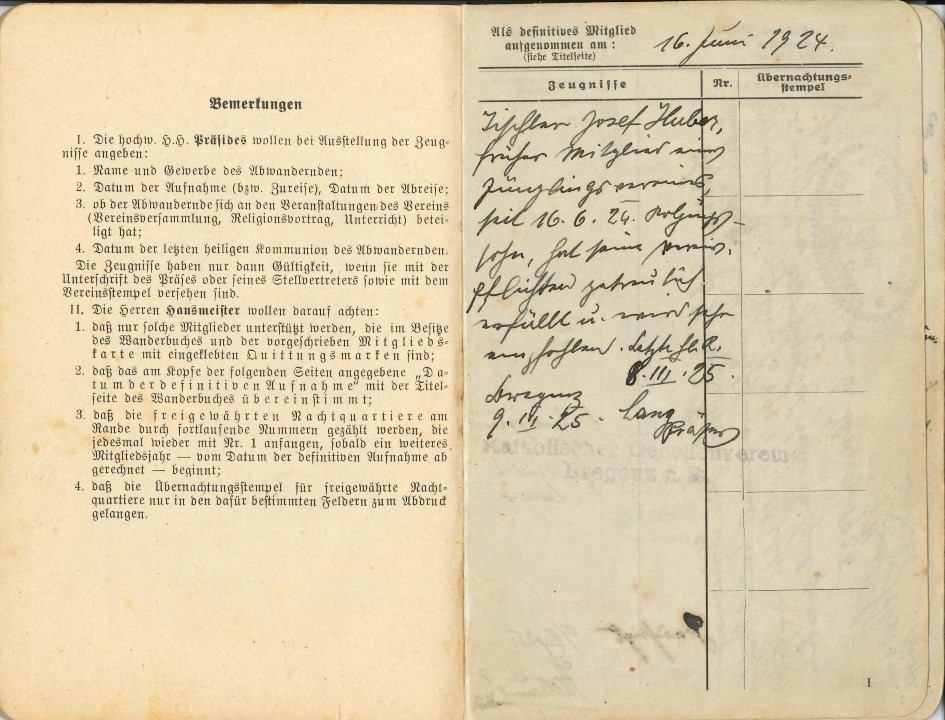 Bemerkungen
I. Die hochw. H.H. Präsides wollen bei Ausstellung der Zeug-
nisse angeben:
1. Name und Gewerbe des Abwandernden;
2. Datum der Aufnahme (bzw. Zureise), Datum der Abreise;
3. ob der Abwandernde sich an den Veranstaltungen des Vereins
(Vereinsversammlung, Religionsvortrag, Unterricht) betei-
ligt hat;
4. Datum der letzten heiligen Kommunion des Abwandernden.
Die Zeugnisse haben nur dann Gültigkeit, wenn sie mit der
Unterschrift des Präses oder seines Stellvertreters sowie mit dem
Vereinsstempel versehen sind.
II. Die Herren Hausmeister wollen darauf achten:
1. daß nur solche Mitglieder unterstützt werden, die im Besitze
des Wanderbuches und der vorgeschrieben Mitglieds-
karte mit eingeklebten Quittungsmarken sind;
2. daß das am Kopfe der folgenden Seiten angegebene „Da-
tum der definitiven Aufnahme" mit der Titel-
seite des Wanderbuches übereinstimmt;
3. daß die freigewährten Nachtquartiere am
Rande durch fortlaufende Nummern gezählt werden, die
jedesmal wieder mit Nr. 1 anfangen, sobald ein weiteres
Mitgliedsjahr — vom Datum der definitiven Aufnahme ab
gerechnet — beginnt;
4. daß die Übernachtungsstempel für freigewährte Nacht-
quartiere nur in den dafür bestimmten Feldern zum Abdruck
gelangen.
Als definitives Mitglied
aufgenommen am:
(siehe Titelseite)
16. Juni 1924.
Zeugnisse
Nr.
Übernachtungs-
stempel
Tischler Josef Huber,
früher Mitglied eines
Jünglingsvereins,
seit 16. 6. 24. Kolpings-
sohn, hat seine Vereins-
pflichten getreulich
erfüllt u. wird sehr
empfohlen. Letzte hl. K.
8. III. 25.
Bregenz
9. III. 25. Lang
Präses
Katholischer Gesellenverein
Bregenz a. B.
1